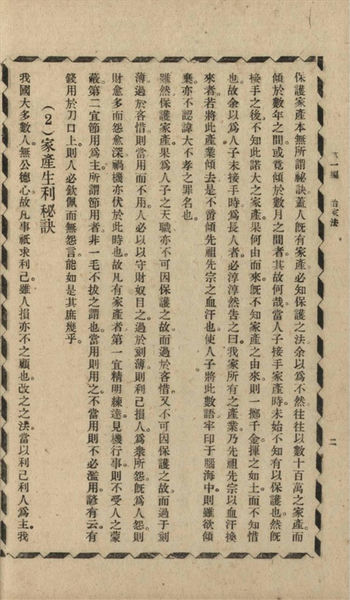 第一編 治家法
二
保護家產本無所謂秘訣蓋人旣有家產必知保護之法余以爲不然往往以數十百萬之家產而
傾於數年之間或竟傾於數月之間者其故何哉當人子接手家產時未始不知有以保護也然旣
接手之後不知此諾大之家產果何由而來旣不知家產之由來則一擲千金揮之如土而不知惜
也故余以爲人子未接手時爲長人者必淳淳然告之曰我家所有之產業乃先祖先宗以血汗換
來者若將此產業傾去是不啻傾先祖先宗之血汗也使人子將此數語牢印于腦海中則雖欲傾
棄亦不認諱大不孝之罪名也
雖然保護家產果爲人子之天職亦不可因保護之故而過於吝惜又不可因保護之故而過于刻
薄過於吝惜則當用而不用人必以以守財奴目之過於刻薄則利己損人爲衆所怨旣爲人怨則
財愈多而怨愈深禍機亦伏於此時也故凡有家產者第一宜精明練達見機行事則不受人之蒙
蔽第二宜節用爲主所謂節用者非一毛不拔之謂也當用則用之不當用則不必濫用諺有云有
錢用於刀口上則人必欽佩而無怨言能如是其庶幾乎
(2)家產生利秘訣
我國大多數人無公德心故凡事祇求利己雖人損亦不之顧也改之之法當以利己利人爲主我